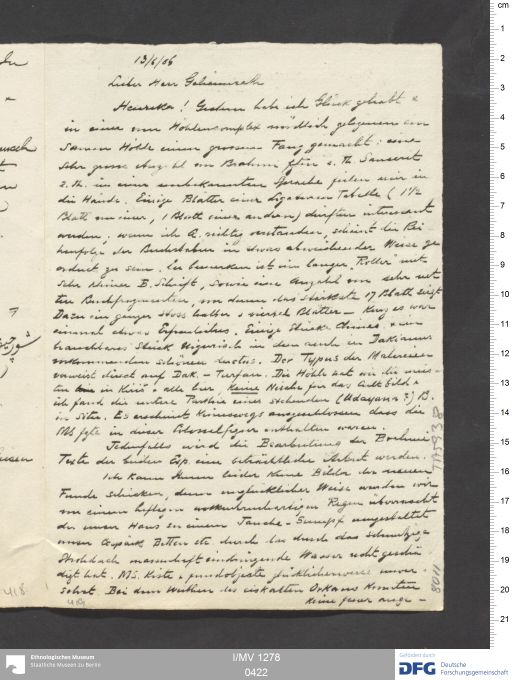 13/6/06
Lieber Herr Geheimrath
Heureka! Gestern hab ich Glück gehabt &
in einer vom Höhlencomplex nördlich gelegenen
Höhle einen grossen Fang gemacht: eine
sehr grosse Anzahl von Brahmi z. Th. Sanscrit
z. Th. in einer unbekannten Sprache fielen mir in
die Hände. Einige Blätter einer Tabelle (1 1/2
Blatt von einer, 1 Blatt einer andern) dürften interessant
werden; wenn ich A. richtig verstanden, scheint die Rei
henfolge der Buchstaben in etwas abweichender Weise ge
ordnet zu sein. Zu bemerken ist ein langer "Roller" mit
sehr kleiner B. Schrift, sowie eine Anzahl von sehr net
ten Buchfragmenten, von denen das stärkste 17 Blatt zeigt
Dazu ein ganzer Stoss halber & viertel Blätter – kurz es war
einmal etwas Erfreuliches. Einige Stücke Chines. & ein
brauchbares Stück Uigurisch in dem auch in Dakianus
vorkommenden schönen Ductus. Der Typus der Malereien
verweist direct auf Dak. – Turfan. Die Höhle hat wie die meis-
ten in Kiriš & alle hier, keine Nische für das Cultbild &
ich fand die untere Parthie eines stehenden (Udayana?) B.
in Situ. Es erscheint keineswegs ausgeschlossen dass die
in dieser Colossalfigur enthalten waren.
Jedenfalls wird die Bearbeitung der Brahmi
Texte der beiden Exp. eine beträchtliche Arbeit werden.
Ich kann Ihnen leider keine Bilder der neuen
Funde schicken, denn unglücklicher Weise wurden wir
von einem heftigen wolkenbruchartigen Regen überrascht
der unser Haus in einem Jauche-Sumpf umgestaltet
unser Gepäck Betten etc durch das durch das schmutzige
Strohdach massenhaft eindringende Wasser recht geschä
digt hat. MS. Kiste & Fundobjecte glücklicherweise unver-
sehrt. Bei dem Wüthen des eiskalten Orkans konnten
keine Feuer ange-
TA 5938
8011
418
419
cm
1
2
3
4
5
6
7
8
9
10
11
12
13
14
15
16
17
18
19
20
21
Ethnologisches Museum
Staatliche Museen zu Berlin
I/MV 1278
0422
Gefördert durch
DFG Deutsche
Forschungsgemeinschaft